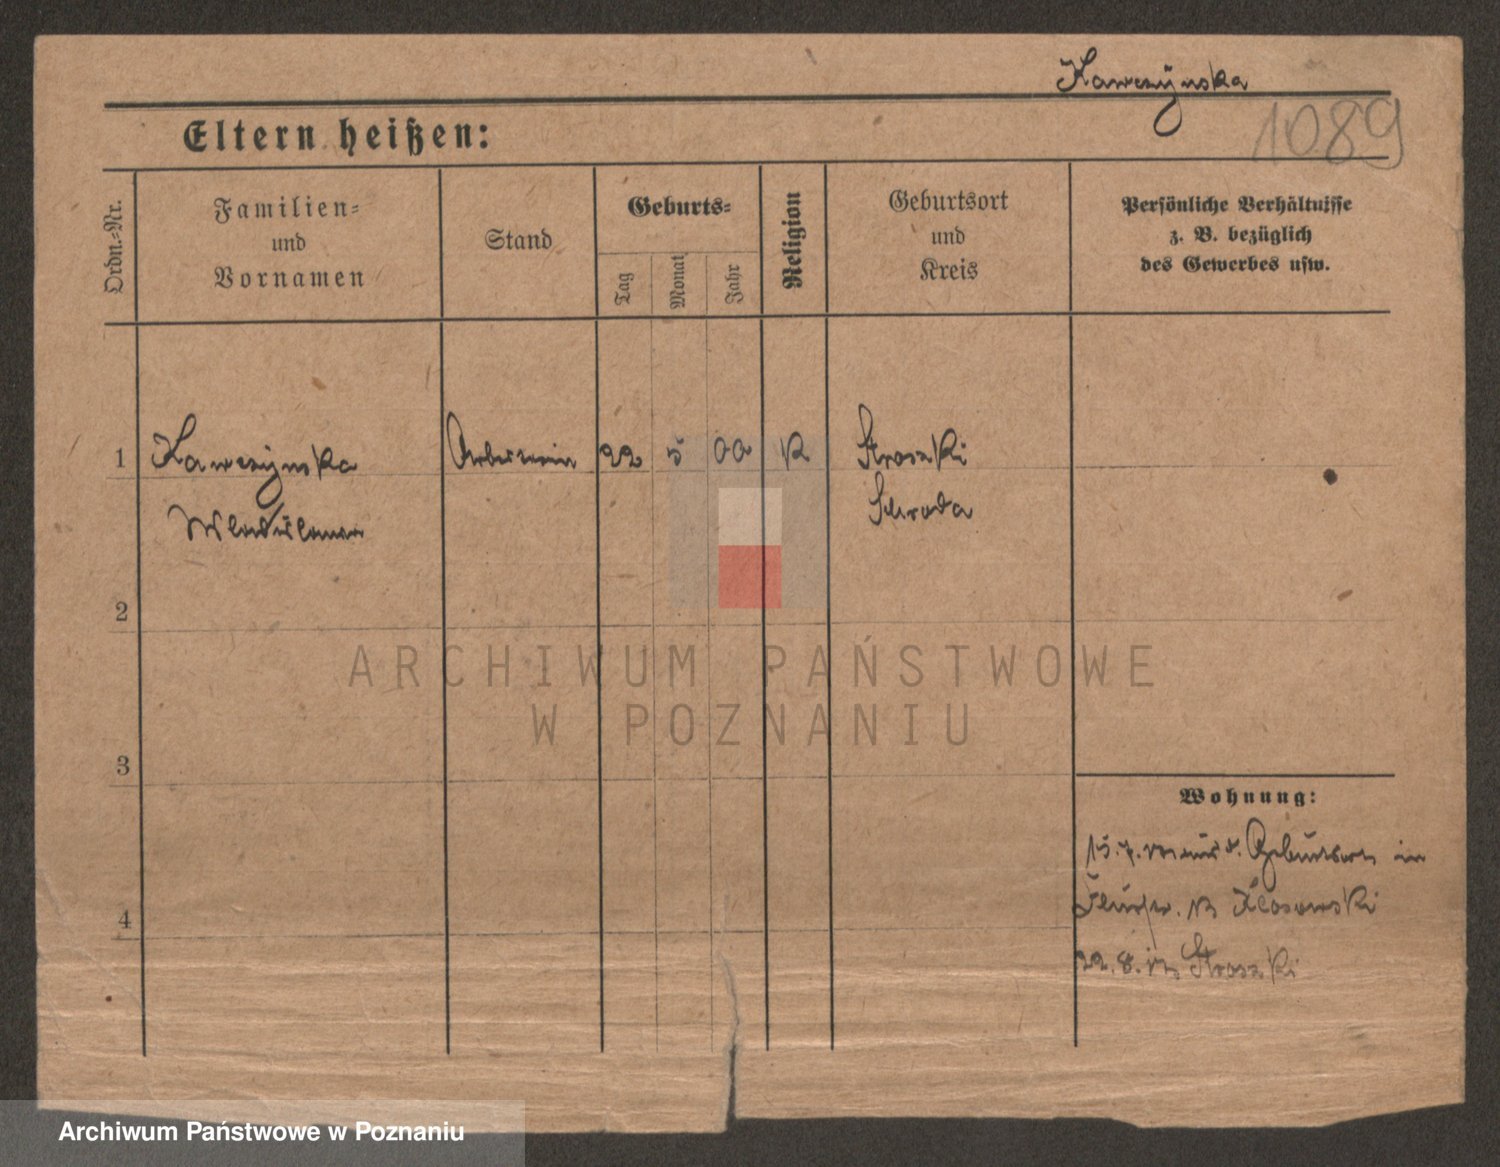 Kawczynska
1089
Eltern heißen:
Ordn.-Nr.
Familien-
und
Vornamen
Stand
Geburts-
Tag
Monat
Jahr
Religion
Geburtsort
und
Kreis
Persönliche Verhältnisse
z. B. bezüglich
des Gewerbes usw.
1 Kawczynska Arbeiterin 22 5 00 K Stroszki
Schroda
2
3
4
Wohnung:
15.7. in
Klosowski
22.8. Stroszki
ARCHIWUM PAŃSTWOWE
W POZNANIU
Archiwum Państwowe w Poznaniu